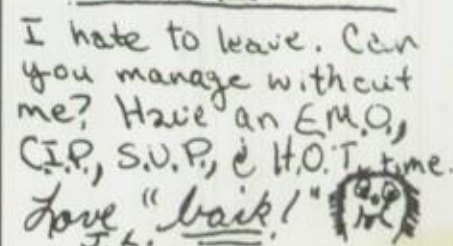 I hate to leave. Can
you manage without
me? Have an E.M.O.,
C.I.P., S.U.P., & H.O.T. time.
Love "back!"